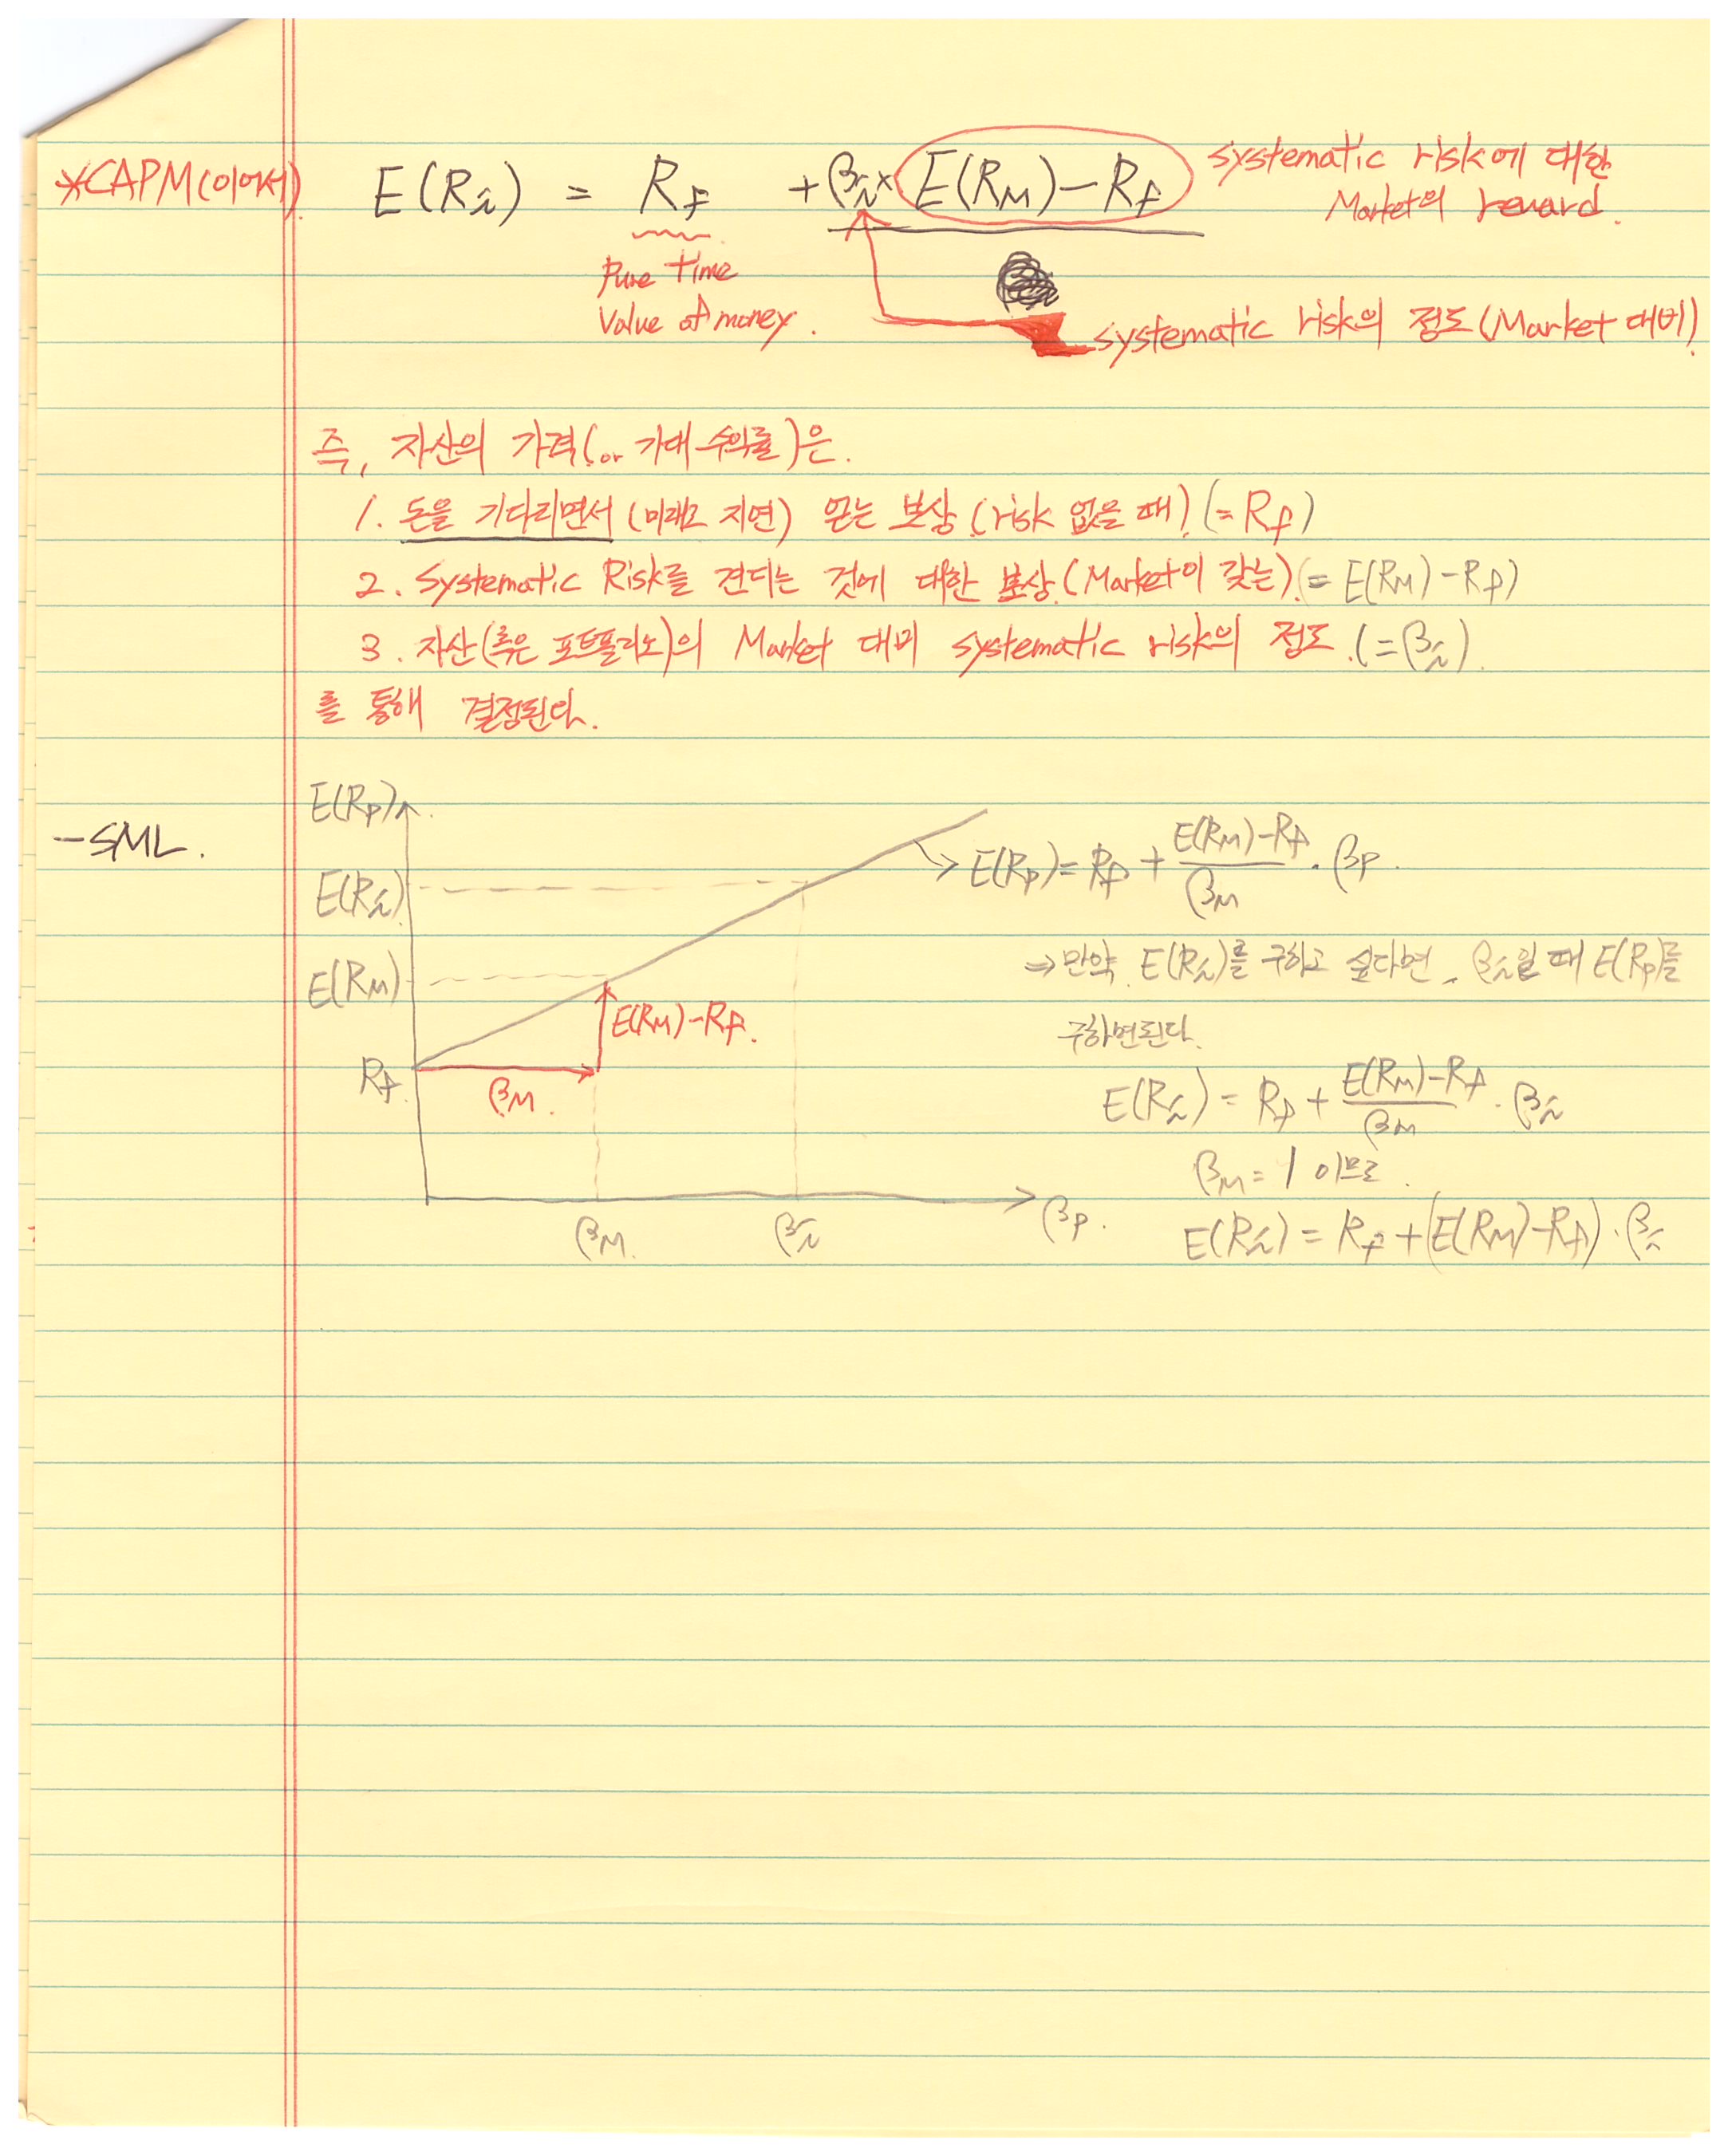 *CAPM(이어서) E(Ri) = Rf + βi × E(RM) - Rf
systematic risk에 대한
Market의 reward.
Pure time
Value of money.
systematic risk의 정도 (Market 대비)
즉, 자산의 가격(or 기대 수익률)은.
1. 돈을 기다리면서 (미래로 지연) 얻는 보상 (risk 없을 때) (= Rf)
2. Systematic Risk를 견디는 것에 대한 보상 (Market이 갖는) (= E(RM) - Rf)
3. 자산(혹은 포트폴리오)의 Market 대비 systematic risk의 정도. (= βi).
를 통해 결정된다.
- SML.
E(RP)
E(Ri)
E(RM)
Rf
E(RM) - Rf.
βM.
βM.
βi
βP.
E(RP) = Rf + E(RM) - Rf / βM · βP.
⇒ 만약 E(Ri)를 구하고 싶다면, βi일 때 E(RP)를
구하면된다.
E(Ri) = Rf + E(RM) - Rf / βM · βi
βM = 1 이므로.
E(Ri) = Rf + (E(RM) - Rf) · βi